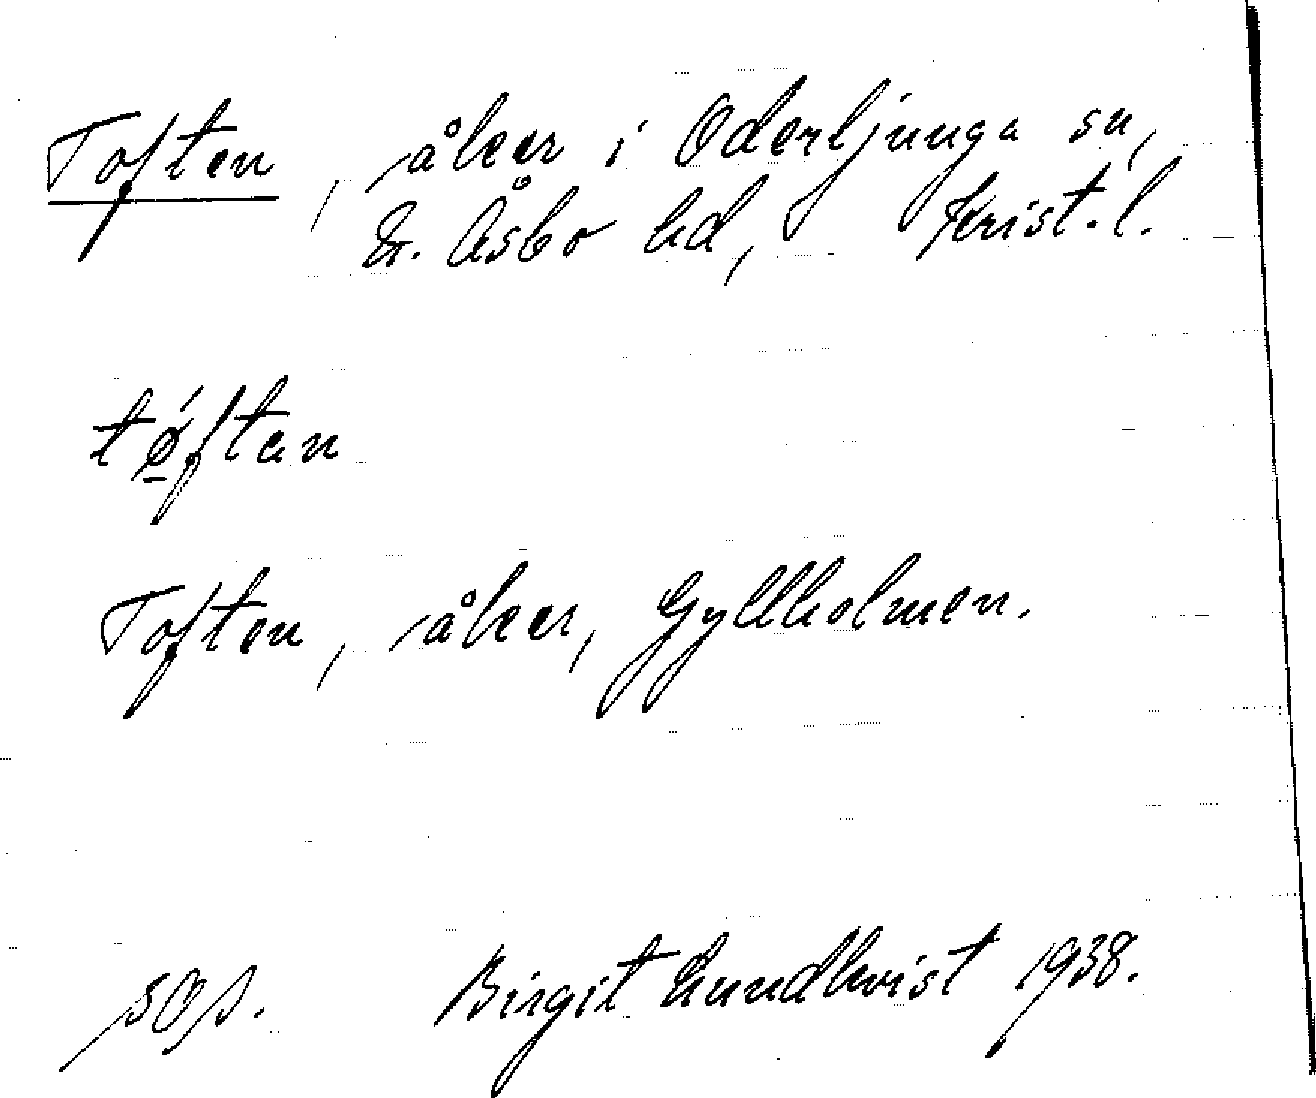 Toften, åker i Oderljunga sn,
N. Åsbo hd, Krist.l.
tǿ̠ftan
Toften, åker, Gyllholmen.
Birgit Lundkvist 1938.